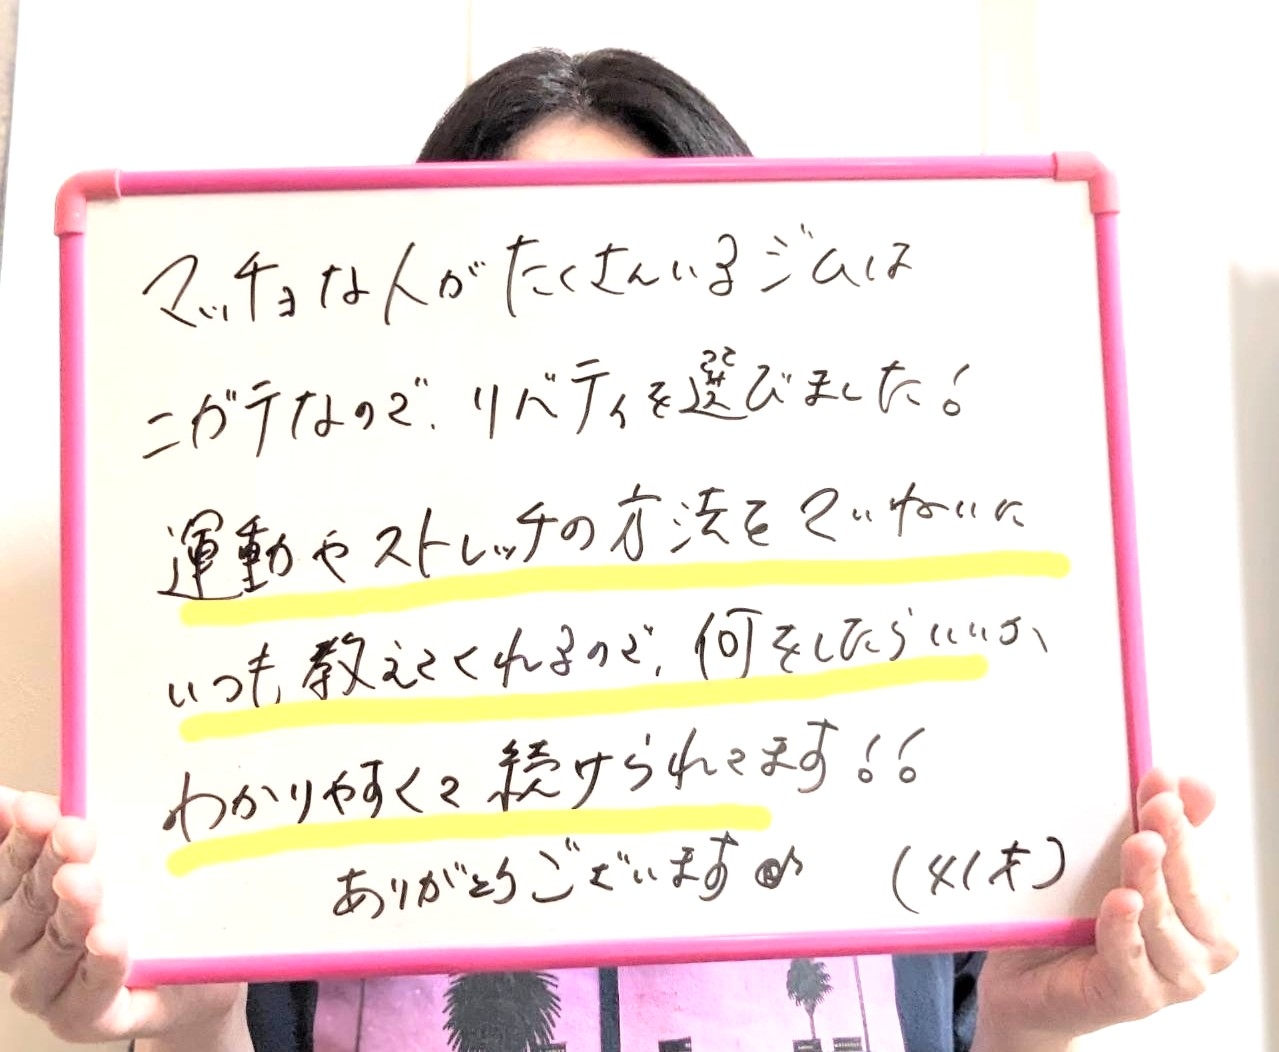 マッチョな人がたくさんいるジムは
ニガテなので、リベティを選びました！
運動やストレッチの方法をていねいに
いつも教えてくれるので、何をしたらいいか
わかりやすくて続けられてます！！
ありがとうございます♪ （41才）